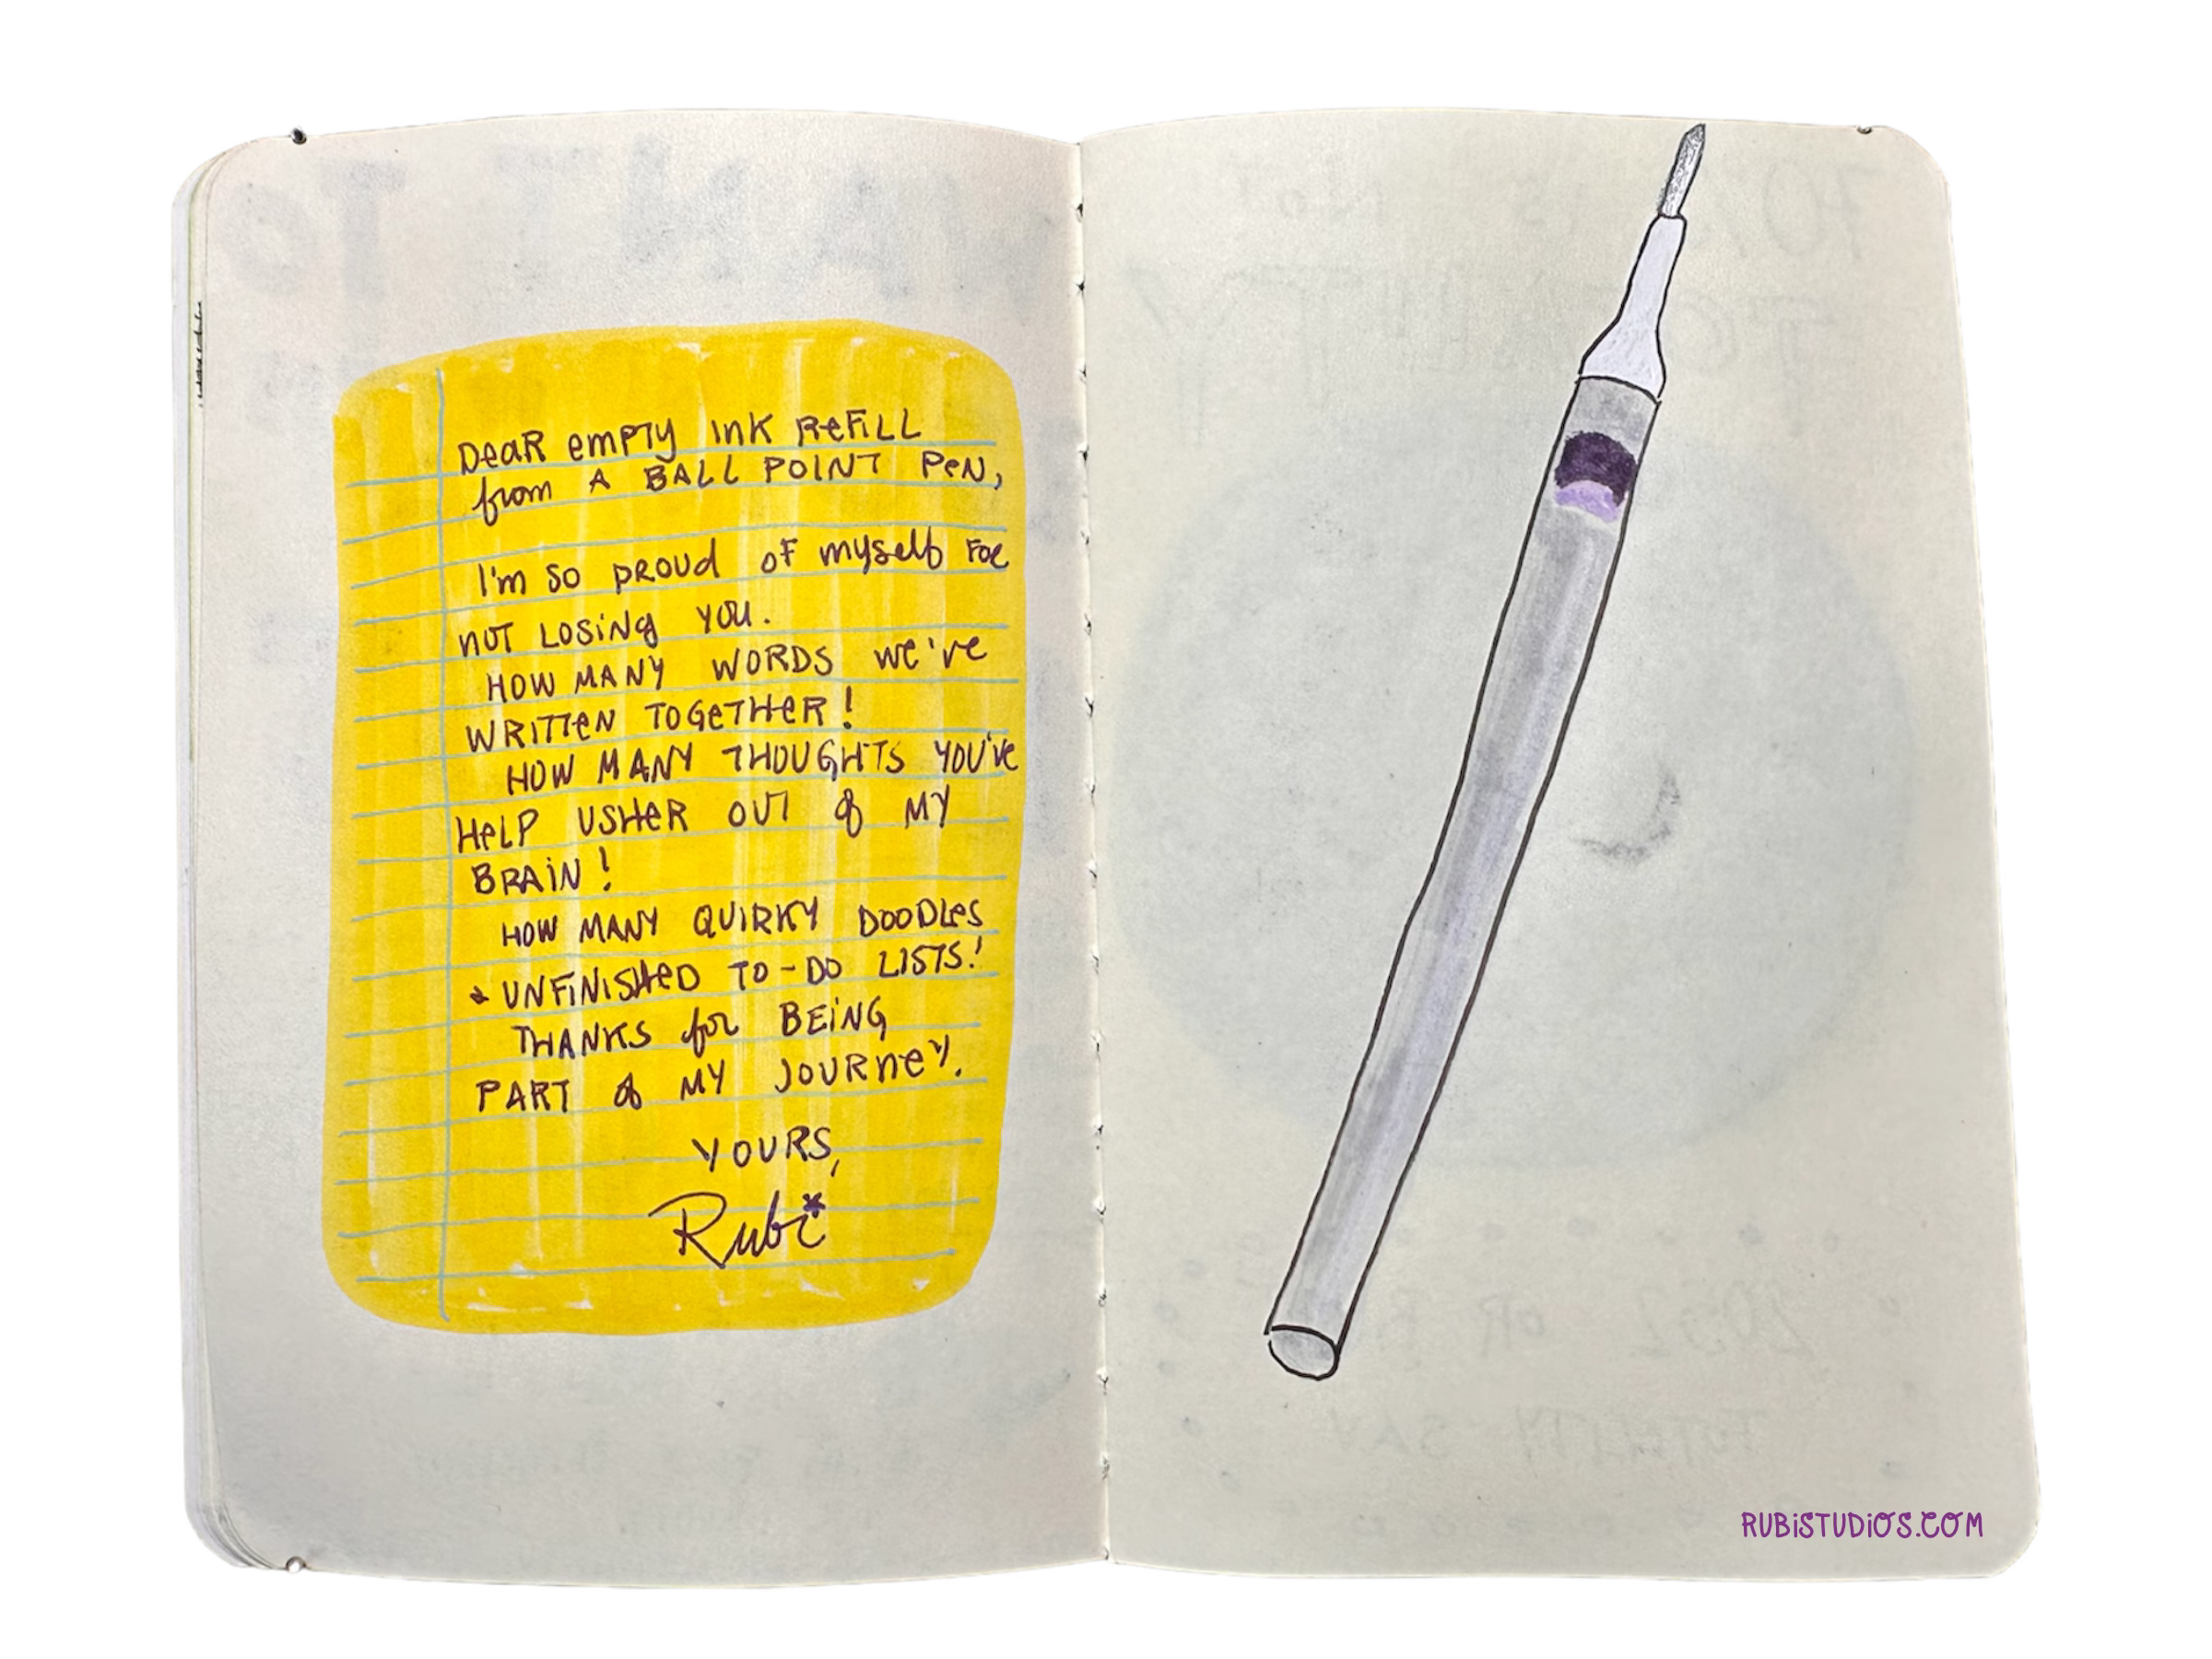 DeaR empty ink Refill
from A BALL POINT Pen,
I'm so proud of myself for
not losing you.
HOW MANY WORDS we've
WRITTEN TOGETHER!
HOW MANY THOUGHTS YOU've
HELP USHER OUT of MY
BRAIN!
HOW MANY QUIRKY DOODLES
& UNFINISHED TO-DO LISTS!
THANKS for BEING
PART of MY JOURNEY.
YOURS,
Rubi*
RUBISTUDIOS.COM